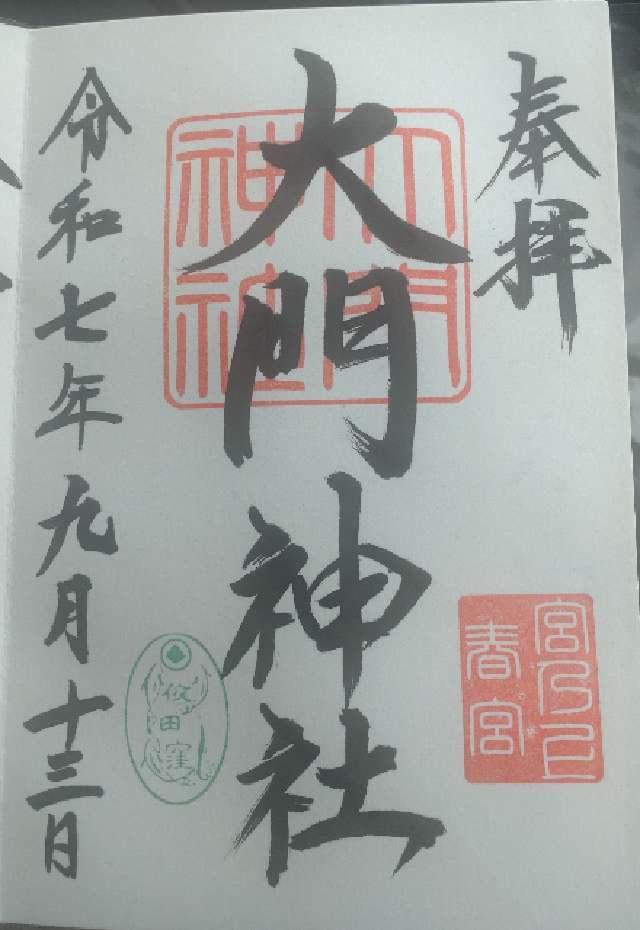 奉拝
宮乃上
春宮
大門神社
大門
神社
令和七年九月十三日